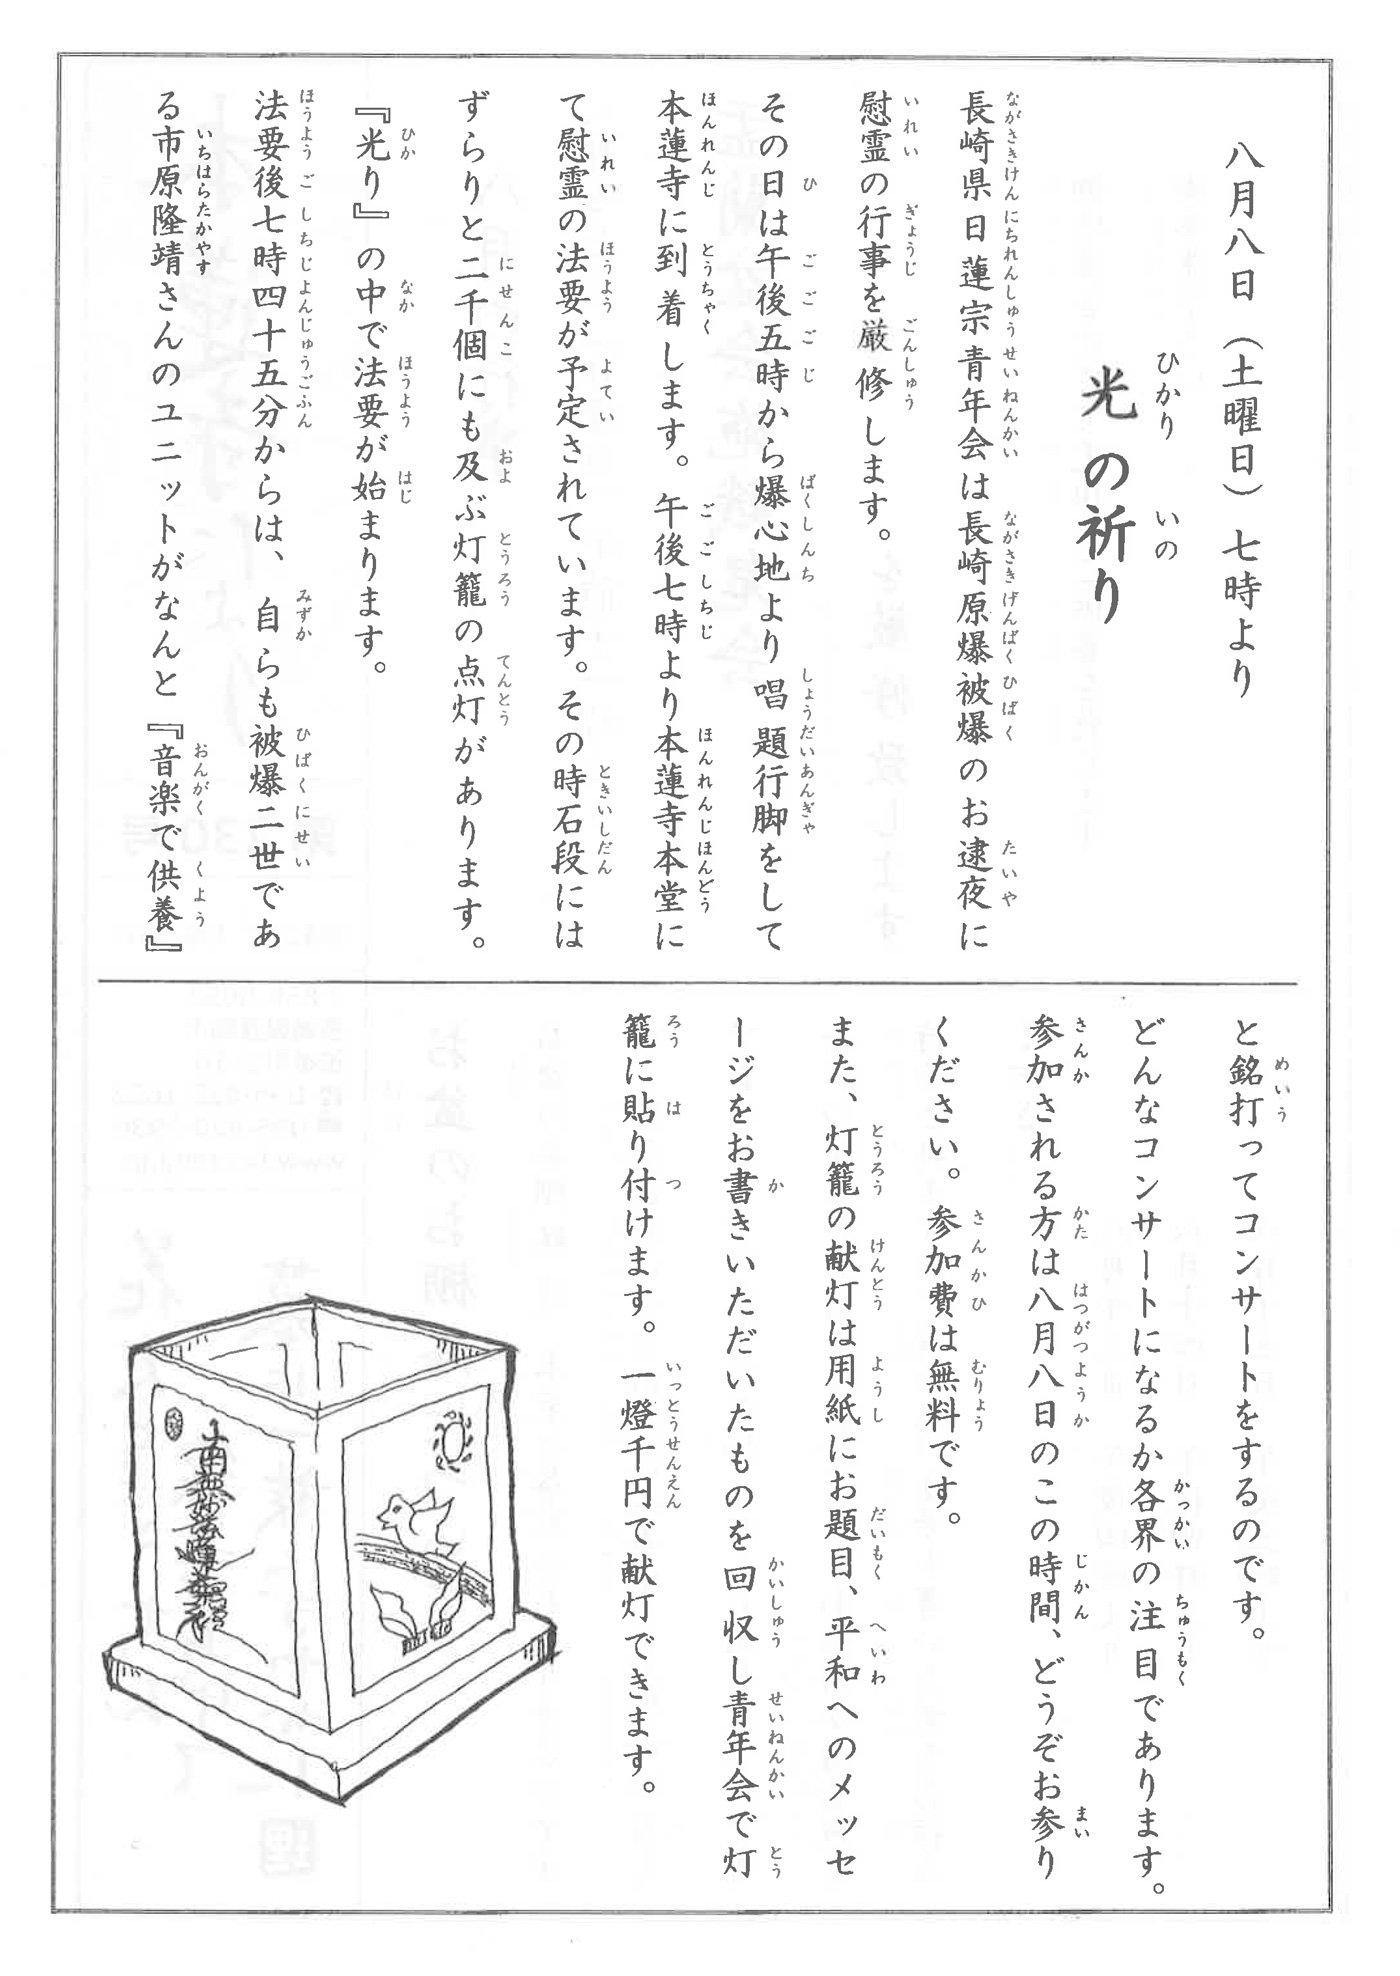 八月八日（土曜日）七時より
光の祈り
長崎県日蓮宗青年会は長崎原爆被爆のお逮夜に
慰霊の行事を厳修します。
その日は午後五時から爆心地より唱題行脚をして
本蓮寺に到着します。午後七時より本蓮寺本堂に
て慰霊の法要が予定されています。その時石段には
ずらりと二千個にも及ぶ灯籠の点灯があります。
『光り』の中で法要が始まります。
法要後七時四十五分からは、自らも被爆二世であ
る市原隆靖さんのユニットがなんと『音楽で供養』
と銘打ってコンサートをするのです。
どんなコンサートになるか各界の注目であります。
参加される方は八月八日のこの時間、どうぞお参り
ください。参加費は無料です。
また、灯籠の献灯は用紙にお題目、平和へのメッセ
ージをお書きいただいたものを回収し青年会で灯
籠に貼り付けます。一燈千円で献灯できます。
南無妙法蓮華経